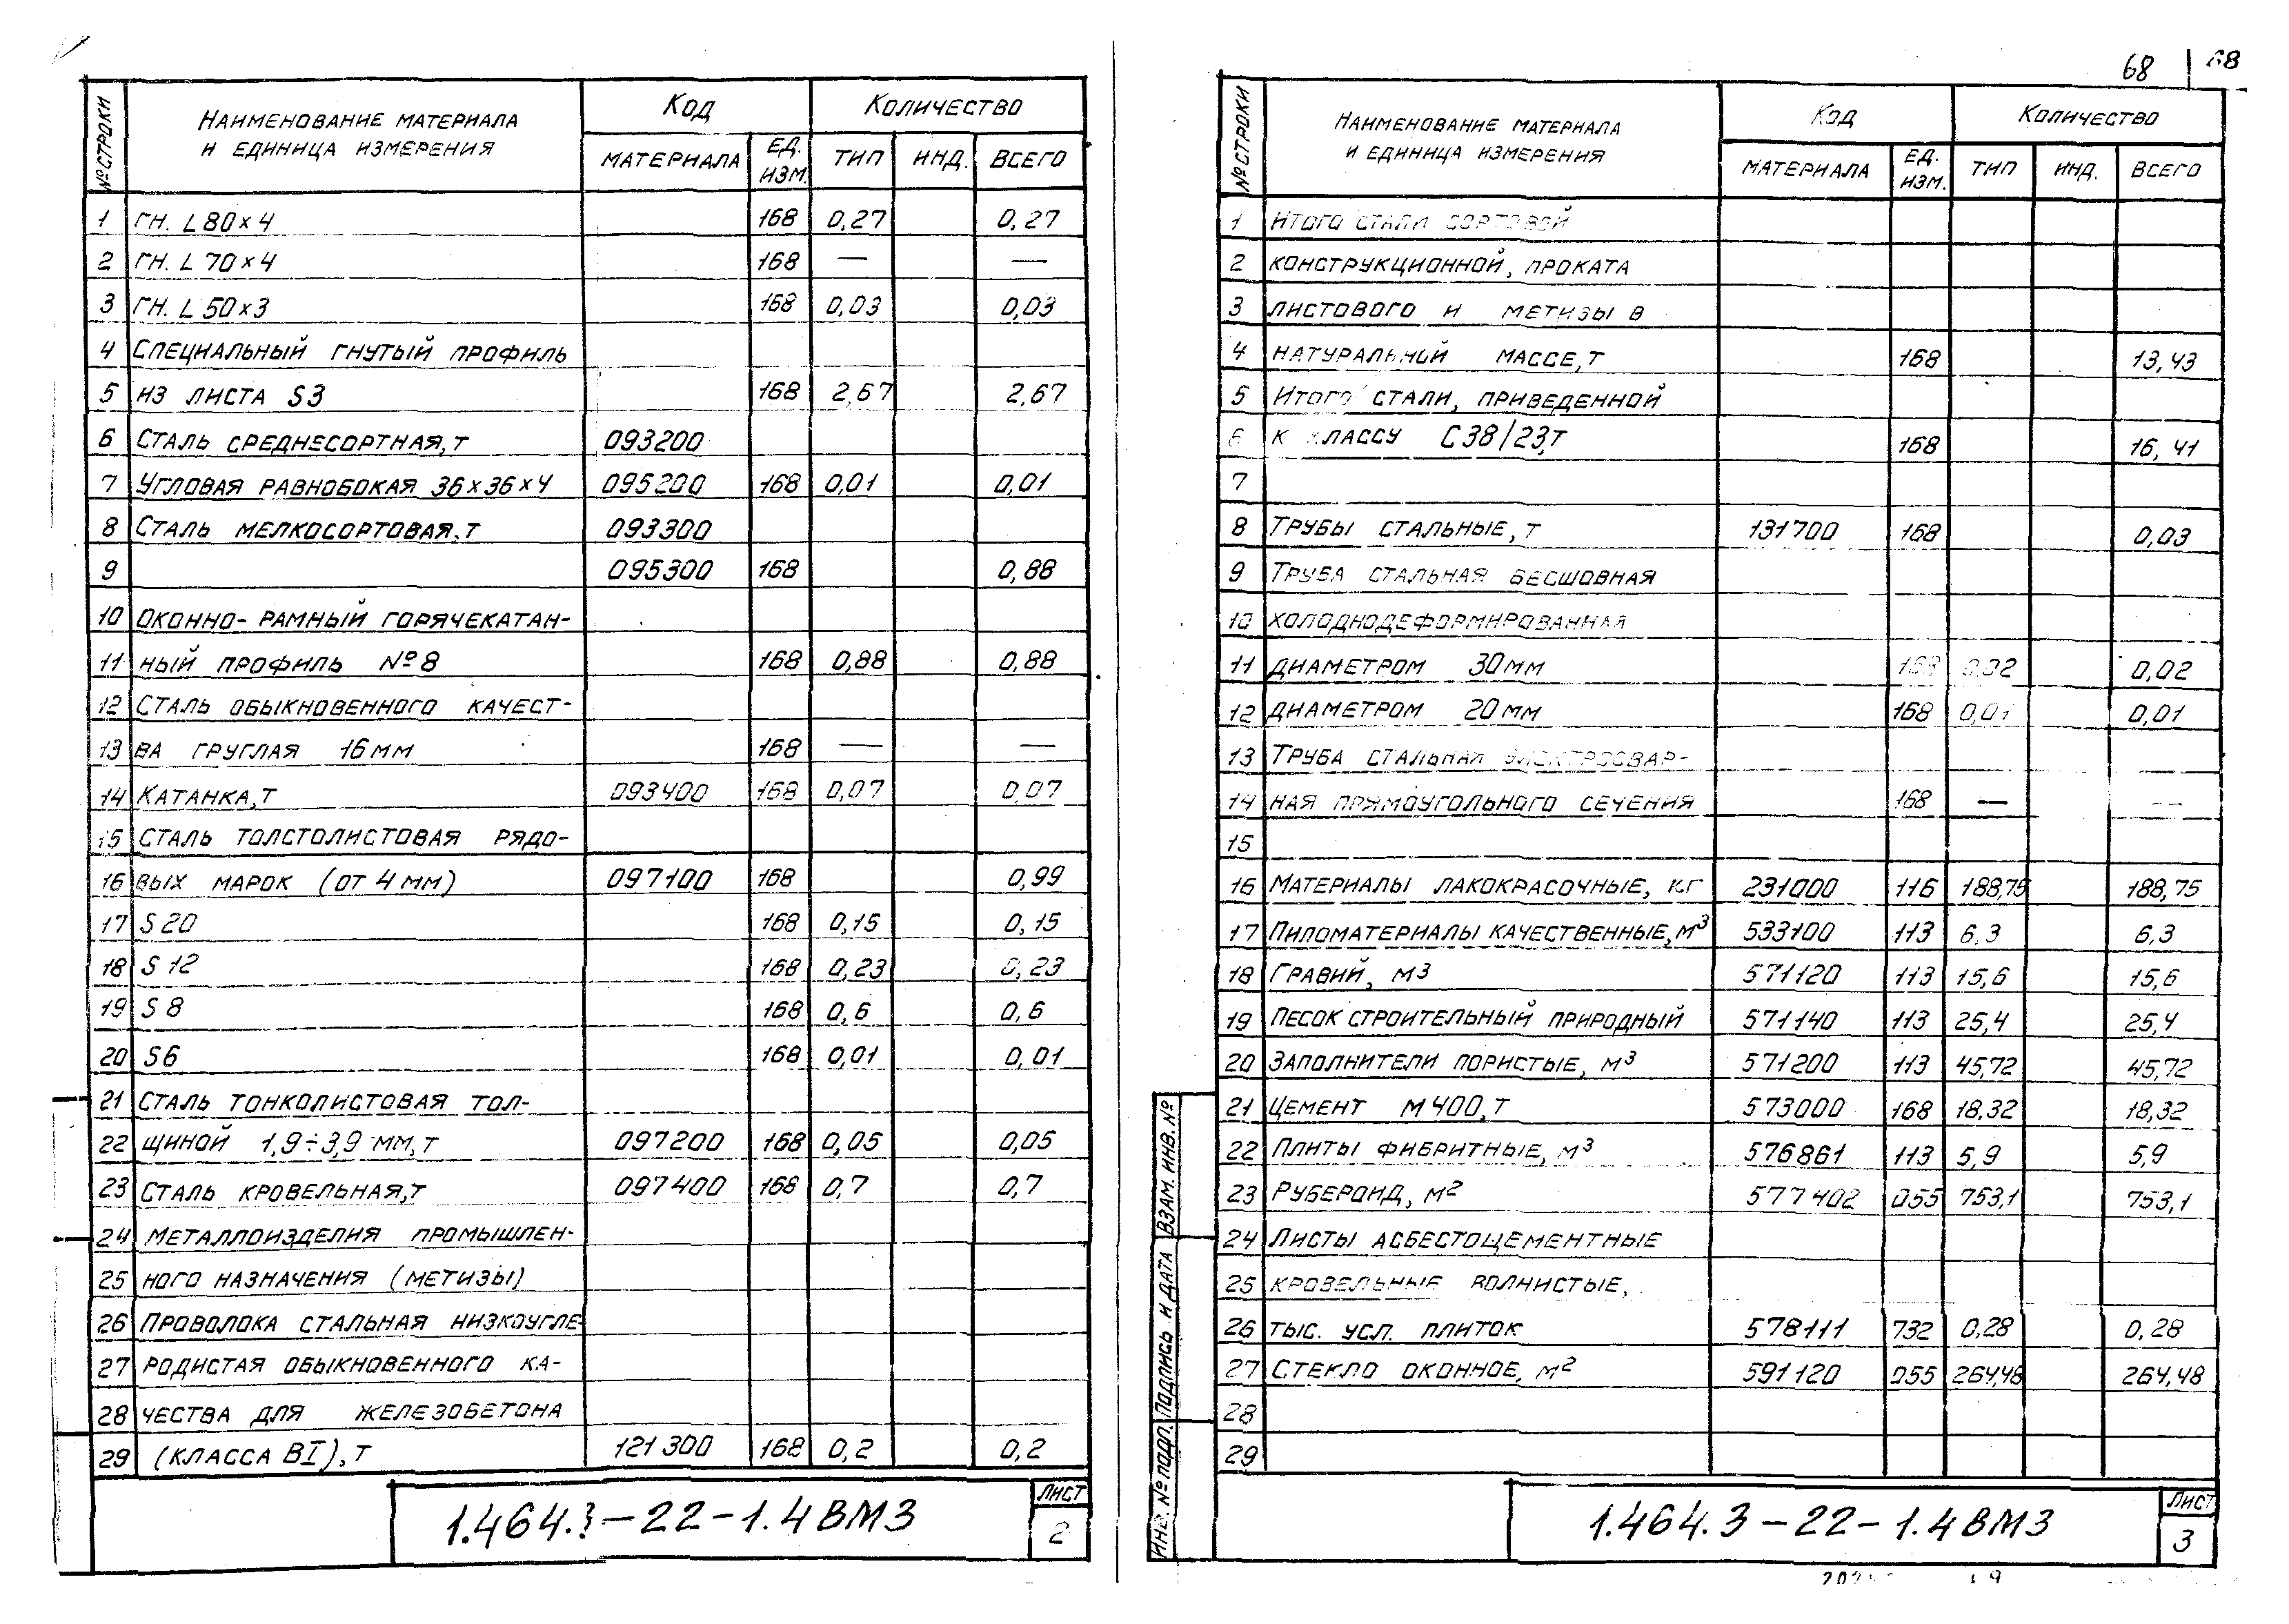 № СТРОКИ | НАИМЕНОВАНИЕ МАТЕРИАЛА И ЕДИНИЦА ИЗМЕРЕНИЯ | КОД | КОЛИЧЕСТВО
МАТЕРИАЛА | ЕД. ИЗМ. | ТИП | ИНД. | ВСЕГО
1 ГН. L 80×4 168 0,27 0,27
2 ГН. L 70×4 168 — —
3 ГН. L 50×3 168 0,03 0,03
4 СПЕЦИАЛЬНЫЙ ГНУТЫЙ ПРОФИЛЬ
5 ИЗ ЛИСТА S3 168 2,67 2,67
6 СТАЛЬ СРЕДНЕСОРТНАЯ, Т 093200
7 УГЛОВАЯ РАВНОБОКАЯ 36×36×4 095200 168 0,01 0,01
8 СТАЛЬ МЕЛКОСОРТОВАЯ, Т 093300
9 095300 168 0,88
10 ОКОННО-РАМНЫЙ ГОРЯЧЕКАТАН-
11 НЫЙ ПРОФИЛЬ №8 168 0,88 0,88
12 СТАЛЬ ОБЫКНОВЕННОГО КАЧЕСТ-
13 ВА ГРУГЛАЯ 16 ММ 168 — —
14 КАТАНКА, Т 093400 168 0,07 0,07
15 СТАЛЬ ТОЛСТОЛИСТОВАЯ РЯДО-
16 ВЫХ МАРОК (ОТ 4 ММ) 097100 168 0,99
17 S 20 168 0,15 0,15
18 S 12 168 0,23 0,23
19 S 8 168 0,6 0,6
20 S6 168 0,01 0,01
21 СТАЛЬ ТОНКОЛИСТОВАЯ ТОЛ-
22 ЩИНОЙ 1,9÷3,9 ММ, Т 097200 168 0,05 0,05
23 СТАЛЬ КРОВЕЛЬНАЯ, Т 097400 168 0,7 0,7
24 МЕТАЛЛОИЗДЕЛИЯ ПРОМЫШЛЕН-
25 НОГО НАЗНАЧЕНИЯ (МЕТИЗЫ)
26 ПРОВОЛОКА СТАЛЬНАЯ НИЗКОУГЛЕ-
27 РОДИСТАЯ ОБЫКНОВЕННОГО КА-
28 ЧЕСТВА ДЛЯ ЖЕЛЕЗОБЕТОНА
29 (КЛАССА ВI), Т 121300 168 0,2 0,2
1.464.3-22-1.4 ВМ3
ЛИСТ
2
68 68
№ СТРОКИ | НАИМЕНОВАНИЕ МАТЕРИАЛА И ЕДИНИЦА ИЗМЕРЕНИЯ | КОД | КОЛИЧЕСТВО
МАТЕРИАЛА | ЕД. ИЗМ. | ТИП | ИНД. | ВСЕГО
1 ИТОГО СТАЛИ СОРТОВОЙ
2 КОНСТРУКЦИОННОЙ, ПРОКАТА
3 ЛИСТОВОГО И МЕТИЗЫ В
4 НАТУРАЛЬНОЙ МАССЕ, Т 168 13,43
5 ИТОГО СТАЛИ, ПРИВЕДЕННОЙ
6 К КЛАССУ С38/23, Т 168 16,41
7
8 ТРУБЫ СТАЛЬНЫЕ, Т 131700 168 0,03
9 ТРУБА СТАЛЬНАЯ БЕСШОВНАЯ
10 ХОЛОДНОДЕФОРМИРОВАННАЯ
11 ДИАМЕТРОМ 30 ММ 168 0,02 0,02
12 ДИАМЕТРОМ 20 ММ 168 0,01 0,01
13 ТРУБА СТАЛЬНАЯ ЭЛЕКТРОСВАР-
14 НАЯ ПРЯМОУГОЛЬНОГО СЕЧЕНИЯ 168 — —
15
16 МАТЕРИАЛЫ ЛАКОКРАСОЧНЫЕ, КГ 231000 116 188,75 188,75
17 ПИЛОМАТЕРИАЛЫ КАЧЕСТВЕННЫЕ, М³ 533100 113 6,3 6,3
18 ГРАВИЙ, М3 571120 113 15,6 15,6
19 ПЕСОК СТРОИТЕЛЬНЫЙ ПРИРОДНЫЙ 571140 113 25,4 25,4
20 ЗАПОЛНИТЕЛИ ПОРИСТЫЕ, М³ 571200 113 45,72 45,72
21 ЦЕМЕНТ М400, Т 573000 168 18,32 18,32
22 ПЛИТЫ ФИБРИТНЫЕ, М³ 576861 113 5,9 5,9
23 РУБЕРОИД, М² 577402 055 753,1 753,1
24 ЛИСТЫ АСБЕСТОЦЕМЕНТНЫЕ
25 КРОВЕЛЬНЫЕ ВОЛНИСТЫЕ,
26 ТЫС. УСЛ. ПЛИТОК 578111 732 0,28 0,28
27 СТЕКЛО ОКОННОЕ, М² 591120 055 264,48 264,48
28
29
ИНВ. № ПОДЛ. ПОДПИСЬ И ДАТА ВЗАМ. ИНВ. №
1.464.3-22-1.4 ВМ3
ЛИСТ
3